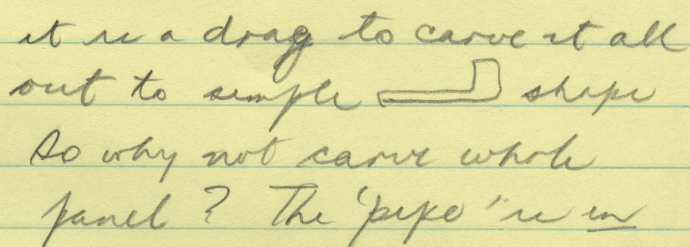 it is a drag to carve it all
out to simple shape
so why not carve whole
panel? The "pipe" is in